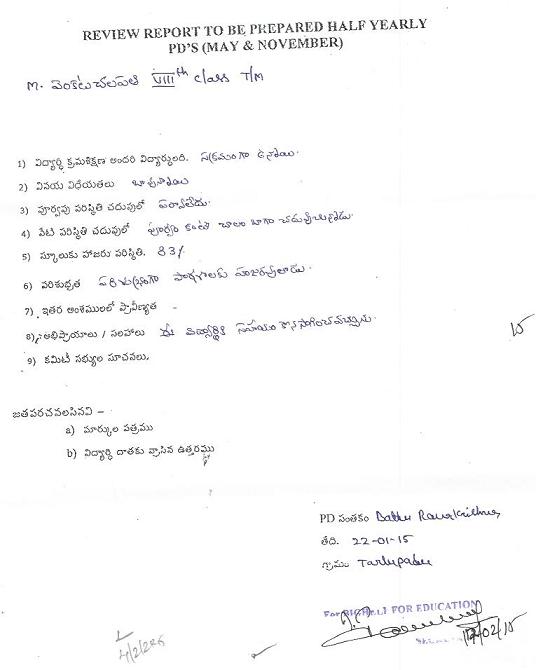 REVIEW REPORT TO BE PREPARED HALF YEARLY
PD'S (MAY & NOVEMBER)
M. వెంకటచలపతి VIIIth class T/M
1) విద్యార్థి క్రమశిక్షణ అందరి విద్యార్థులది. సక్రమంగా ఉన్నాయి.
2) వినయ విధేయతలు బావున్నాయి
3) పూర్వపు పరిస్థితి చదువులో పర్వాలేదు.
4) నేటి పరిస్థితి చదువులో పూర్వం కంటే చాలా బాగా చదువుచున్నాడు.
5) స్కూలుకు హాజరు పరిస్థితి. 83%
6) పరిశుభ్రత పరిశుభ్రంగా పాఠశాలకు హాజరవుతాడు.
7) ఇతర అంశములలో ప్రావీణ్యత -
8) అభిప్రాయాలు / సలహాలు ఈ విద్యార్థికి సహాయం కొనసాగించవచ్చును.
9) కమిటీ సభ్యుల సూచనలు.
జతపరచవలసినవి –
a) మార్కుల పత్రము
b) విద్యార్థి దాతకు వ్రాసిన ఉత్తరము
PD సంతకం Battu Ramakrishna
తేది. 22-01-15
గ్రామం Tarlupadu
For FOR EDUCATION
/02/15